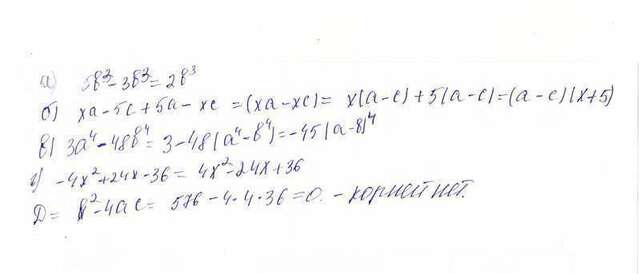 а) 5b³-3b³=2b³
б) xa-5c+5a-xc =(xa-xc)= x(a-c)+5(a-c)=(a-c)(x+5)
в) 3a⁴-48b⁴=3-48(a⁴-b⁴)=-45(a-b)⁴
г) -4x²+24x-36= 4x²-24x+36
D= b²-4ac= 576-4·4·36=0. - корней нет.